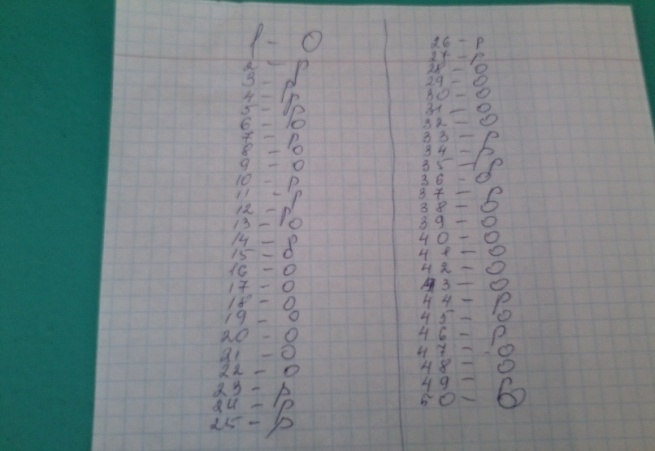 1 - О
2 - р
3 - р
4 - р
5 - р
6 - О
7 - р
8 - О
9 - О
10 - р
11 - р
12 - р
13 - О
14 -
15 - О
16 - О
17 - О
18 - О
19 - О
20 - О
21 - О
22 - О
23 - р
24 - р
25 - р
26 - р
27 - р
28 - О
29 - О
30 - О
31 - О
32 - О
33 - р
34 - р
35 - р
36 - О
37 - р
38 - О
39 - О
40 - О
41 - О
42 - О
43 - О
44 - р
45 - О
46 - р
47 - О
48 - О
49 - р
50 - О